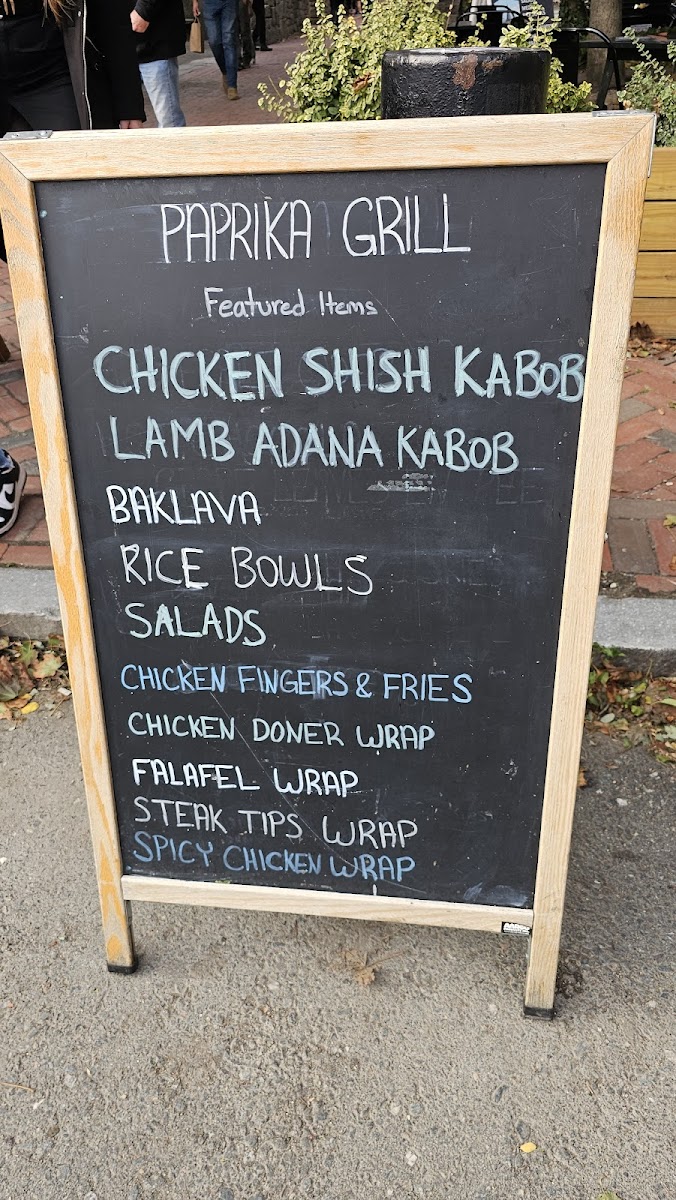 PAPRIKA GRILL
Featured Items
CHICKEN SHISH KABOB
LAMB ADANA KABOB
BAKLAVA
RICE BOWLS
SALADS
CHICKEN FINGERS & FRIES
CHICKEN DONER WRAP
FALAFEL WRAP
STEAK TIPS WRAP
SPICY CHICKEN WRAP